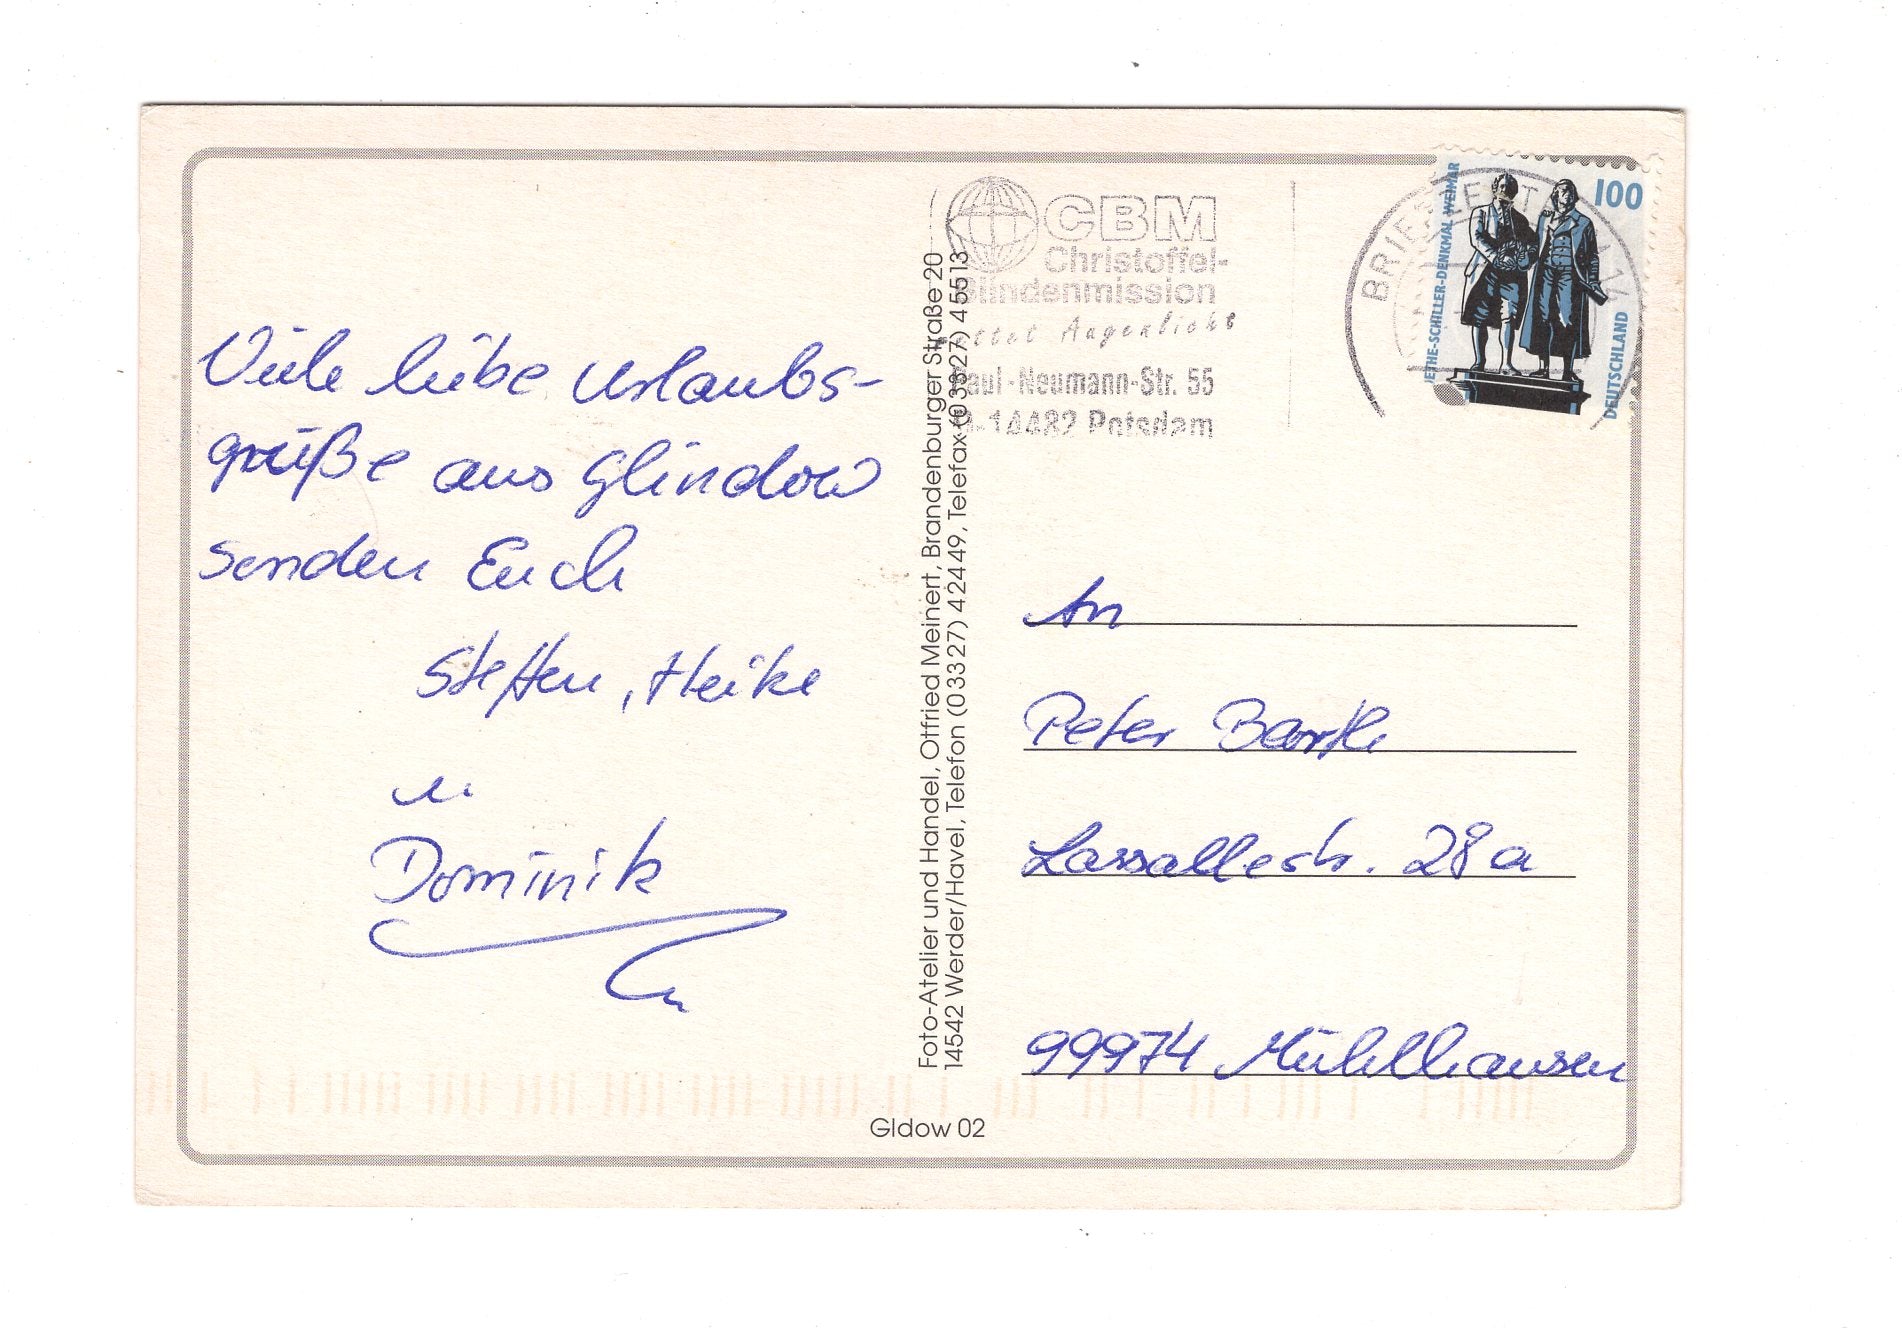 Viele liebe Urlaubs-
grüße aus Glindow
senden Euch
Steffen, Heike
u.
Dominik
Foto-Atelier und Handel, Otfried Meinert, Brandenburger Straße 20
14542 Werder/Havel, Telefon (03327) 42449, Telefax (03327) 45513
Gldow 02
CBM
Christoffel-
Blindenmission
rettet Augenlicht
Paul-Neumann-Str. 55
D-14482 Potsdam
BRIEFZENTRUM 14
GOETHE-SCHILLER-DENKMAL WEIMAR
100
DEUTSCHLAND
An
Peter Barth
Lassallestr. 28a
99974 Mühlhausen